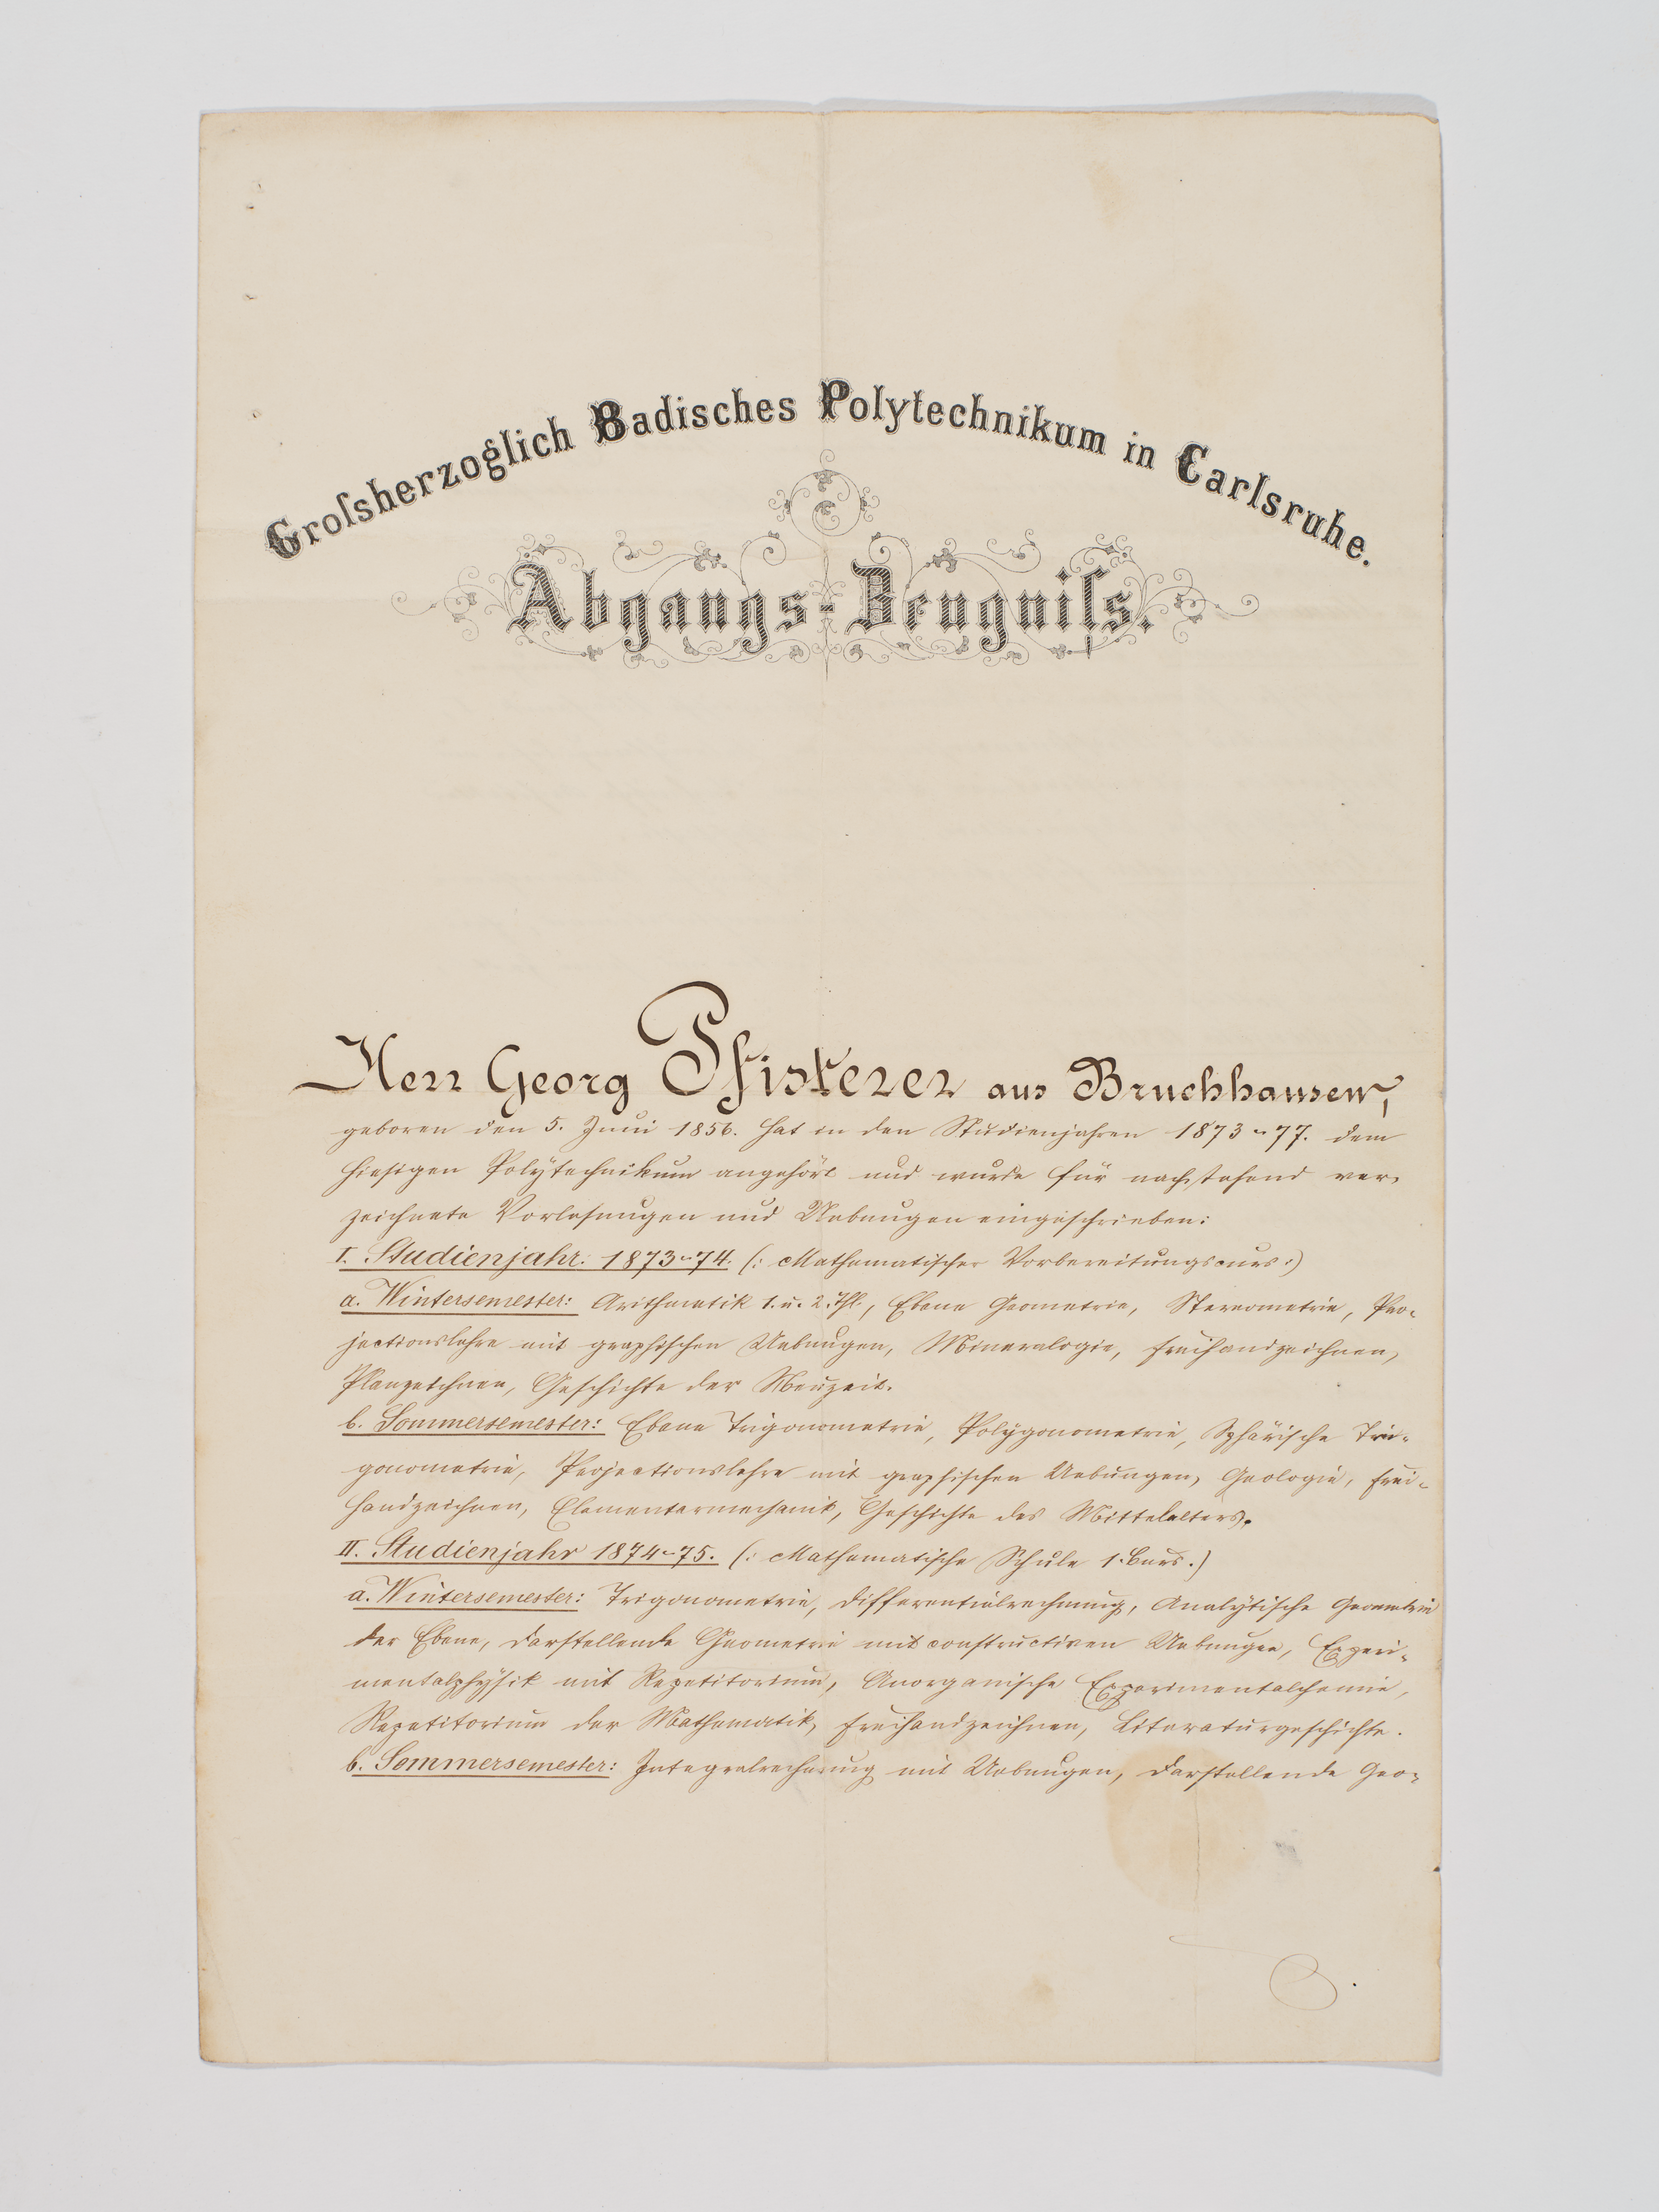 Groſsherzoglich Badisches Polytechnikum in Carlsruhe.
Abgangs-Zeugniſs.
Herr Georg Pfisterer aus Bruchhausen,
geboren den 5. Juni 1856. hat in den Studienjahren 1873-77. dem
hiesigen Polytechnikum angehört und wurde für nachstehend ver-
zeichnete Vorlesungen und Uebungen eingeschrieben:
I. Studienjahr: 1873-74. (: Mathematischer Vorbereitungscurs :)
a. Wintersemester: Arithmetik 1. u. 2. Thl., Ebene Geometrie, Stereometrie, Pro-
jectionslehre mit graphischen Uebungen, Mineralogie, Freihandzeichnen,
Planzeichnen, Geschichte der Neuzeit.
b. Sommersemester: Ebene Trigonometrie, Polygonometrie, Sphärische Tri-
gonometrie, Projectionslehre mit graphischen Uebungen, Geologie, Frei-
handzeichnen, Elementarmechanik, Geschichte des Mittelalters.
II. Studienjahr 1874-75. (: Mathematische Schule 1. Curs.)
a. Wintersemester: Trigonometrie, Differentialrechnung, Analytische Geometrie
der Ebene, Darstellende Geometrie mit constructiven Uebungen, Experi-
mentalphysik mit Repetitorium, Anorganische Experimentalchemie,
Repetitorium der Mathematik, Freihandzeichnen, Literaturgeschichte.
b. Sommersemester: Integralrechnung mit Uebungen, Darstellende Geo-